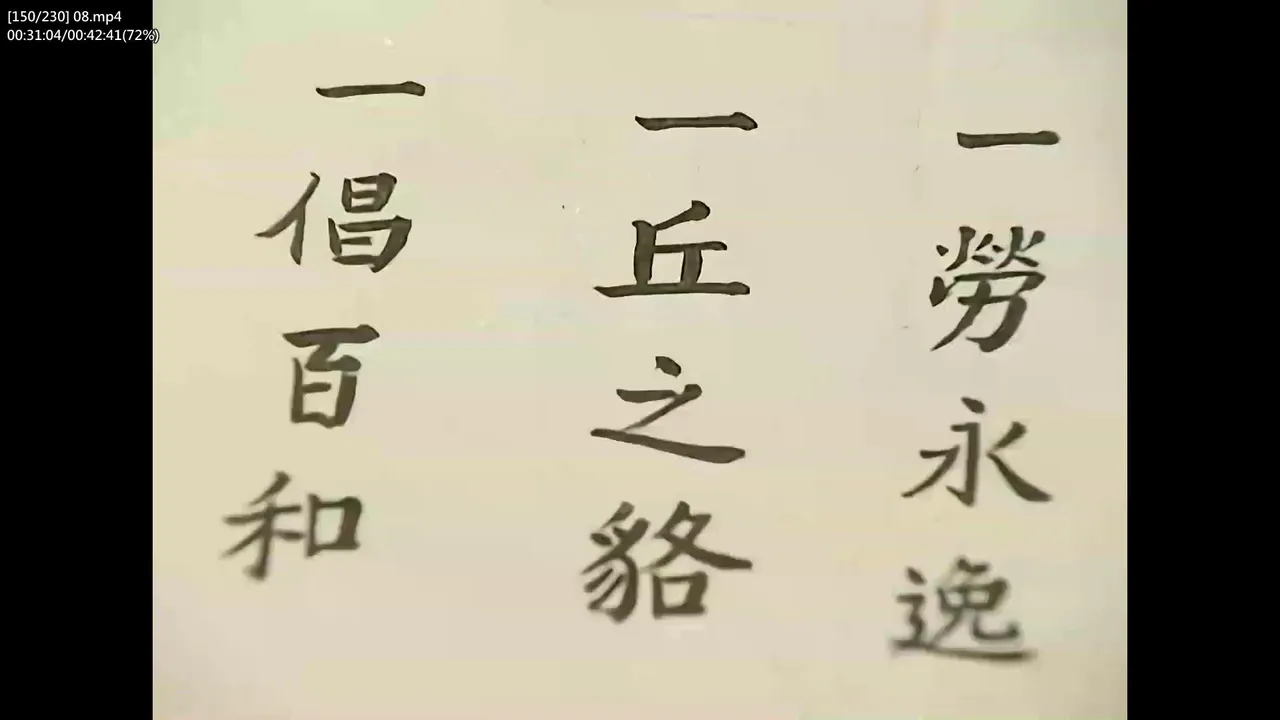 [150/230] 08.mp4
00:31:04/00:42:41(72%)
一勞永逸
一丘之貉
一倡百和